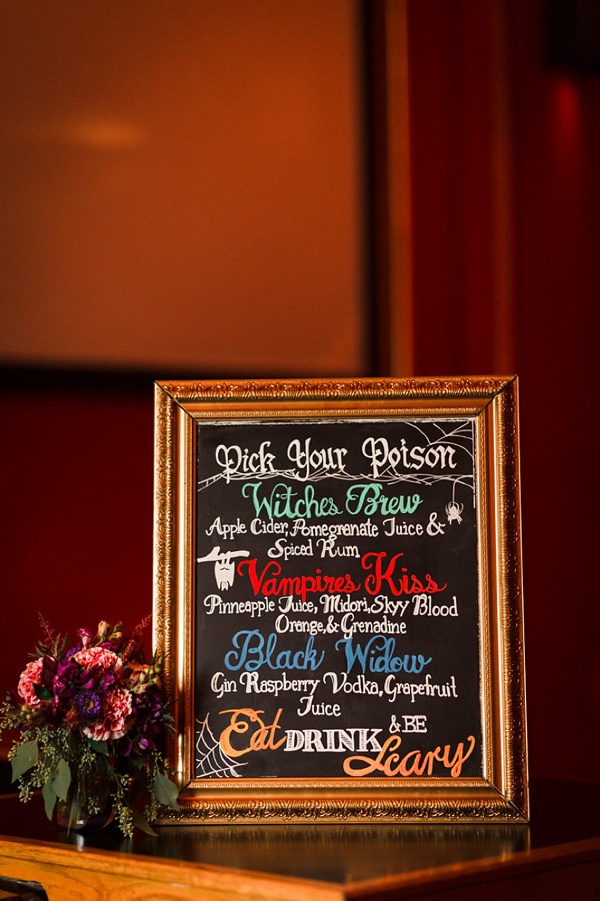 Pick Your Poison
Witches Brew
Apple Cider, Pomegranate Juice &
Spiced Rum
Vampires Kiss
Pinneapple Juice, Midori, Skyy Blood
Orange, & Grenadine
Black Widow
Gin Raspberry Vodka, Grapefruit
Juice
Eat DRINK & BE
Scary